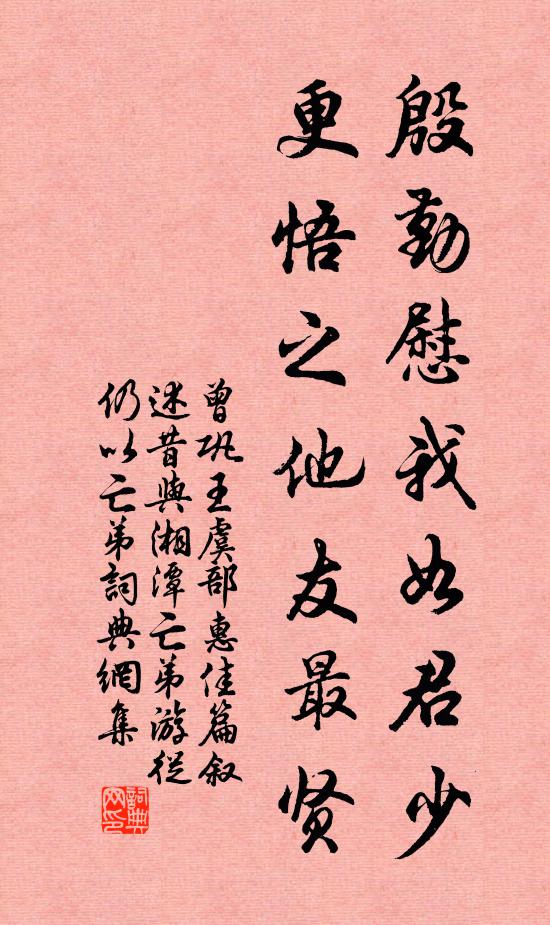 殷勤慰我如君少
更悟之他友最贤
曾巩王虞部惠佳篇叙
述昔與湘潭亡弟游從
仍以亡弟詞典網集
詞典网印